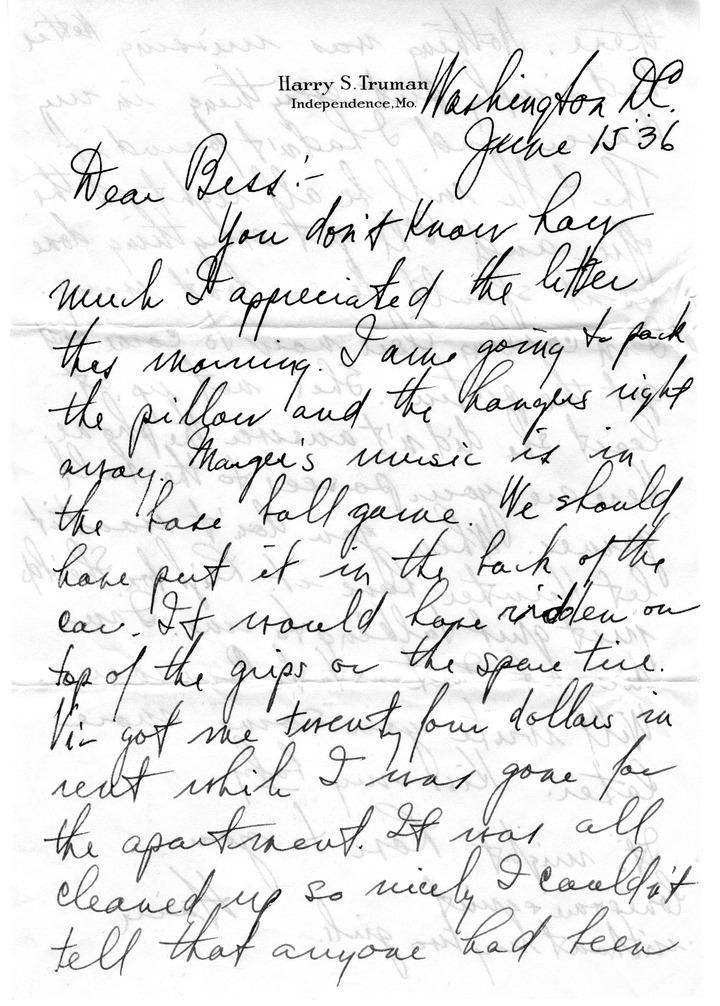 Harry S. Truman
Independence, Mo.
Washington D.C.
June 15 '36
Dear Bess:-
You don't know how
much I appreciated the letter
this morning. I am going to pack
the pillow and the hangers right
away. Margie's music is in
the base ball game. We should
have put it in the back of the
car. It would have ridden on
top of the grips or the spare tire.
Vic got me twenty four dollars in
rent while I was gone for
the apartment. It was all
cleaned up so nicely I couldn't
tell that anyone had been